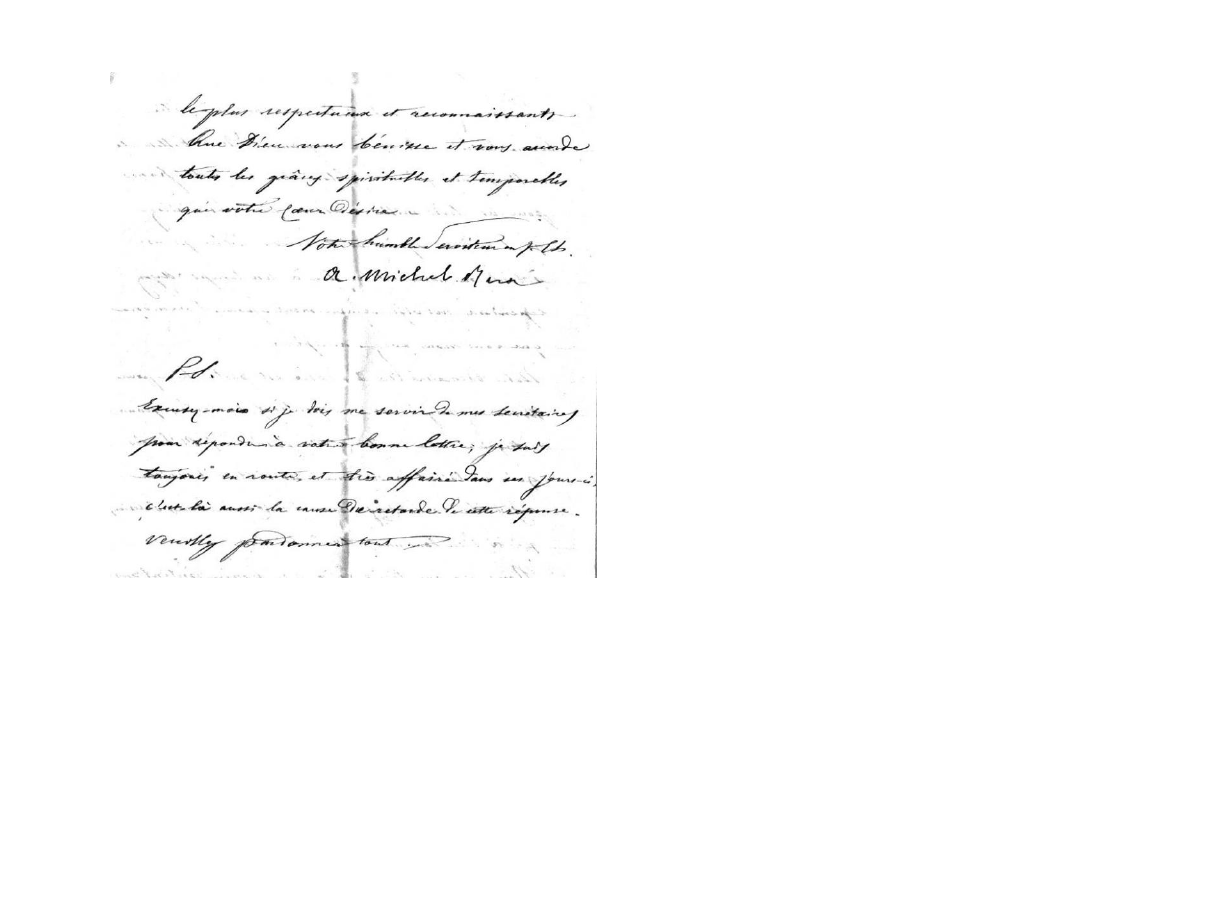 le plus respectueux et reconnaissants
Que Dieu vous bénisse et vous accorde
toutes les grâces spirituelles et temporelles
que votre Cœur Désire
Votre humble Serviteur en J. Ch.
A. Michel Rua
P.S.
Excusez-moi si je dois me servir de mes secrétaires
pour répondre à votre bonne lettre; je suis
toujours en route, et très affairé dans ses jours-ci,
c'est là aussi la cause De retarde De cette réponse.
Veuillez pardonner tout